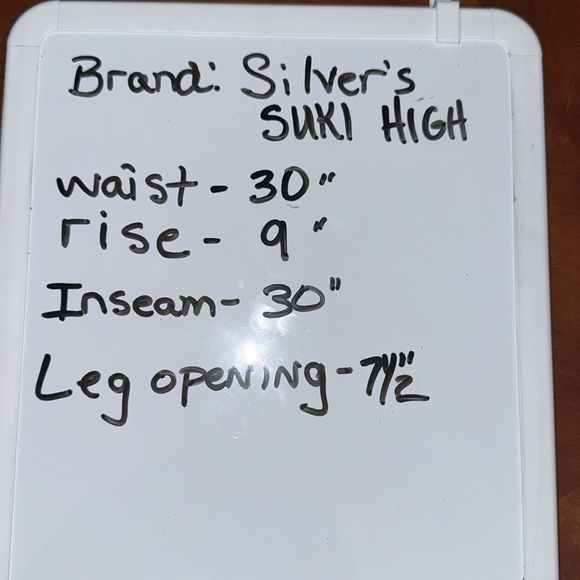 Brand: Silver's
SUKI HIGH
waist - 30"
rise - 9"
Inseam - 30"
Leg opening - 7 1/2"